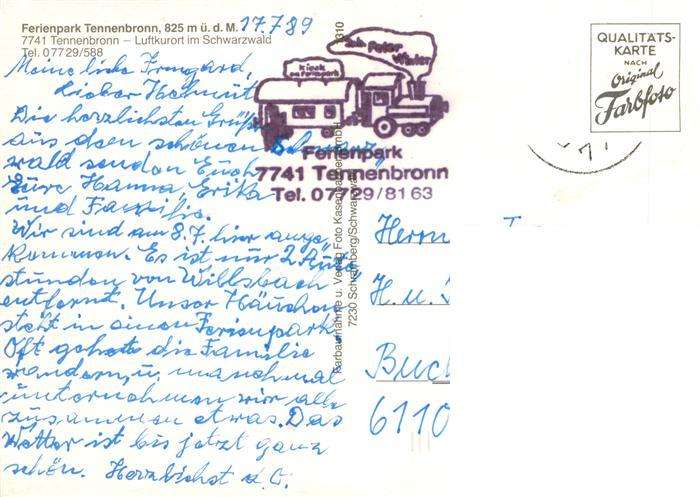 Ferienpark Tennenbronn, 825 m ü. d. M.
7741 Tennenbronn – Luftkurort im Schwarzwald
Tel. 07729/588
17.7.89
Meine liebe Irmgard,
lieber Helmut
Die herzlichsten Grüße
aus dem schönen Schwarz
wald senden Euch
Eure Hanna, Erika
und Familie.
Wir sind am 8.7. hier ange
kommen. Es ist nur 2 Auto
stunden von Willsbach
entfernt. Unser Häuschen
steht in einem Ferienpark.
Oft geht die Familie
wandern, u. manchmal
unternehmen wir alle
zusammen etwas. Das
Wetter ist bis jetzt ganz
schön. Herzlichst d. O.
310
Farbaufnahme u. Verlag Foto Kasenbacher GmbH
7230 Schramberg/Schwarzwald
Inh. Peter
Winter
Kiosk
am Ferienpark
Ferienpark
7741 Tennenbronn
Tel. 07729/8163
QUALITÄTS-
KARTE
NACH
Original
Farbfoto
Herrn
H. u.
Buc
6110